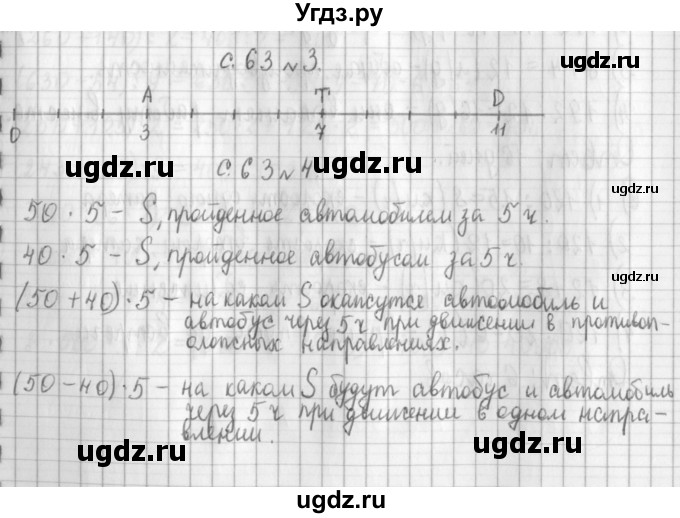 Угдз.ру
с. 63 №3.
A T D
0 3 7 11
ugdz.ru ugdz.ru
с. 63 №4
ugdz.ru
50 · 5 – S, пройденное автомобилем за 5 ч.
40 · 5 – S, пройденное автобусом за 5 ч.
ugdz.ru
(50 + 40) · 5 – на каком S окажутся автомобиль и
автобус через 5 ч при движении в противоп-
оложных направлениях.
ugdz.ru ugdz.ru
(50 – 40) · 5 – на каком S будут автобус и автомобиль
через 5 ч при движении в одном напра-
влении.
ugdz.ru
ugdz.ru ugdz.ru
ugdz.ru